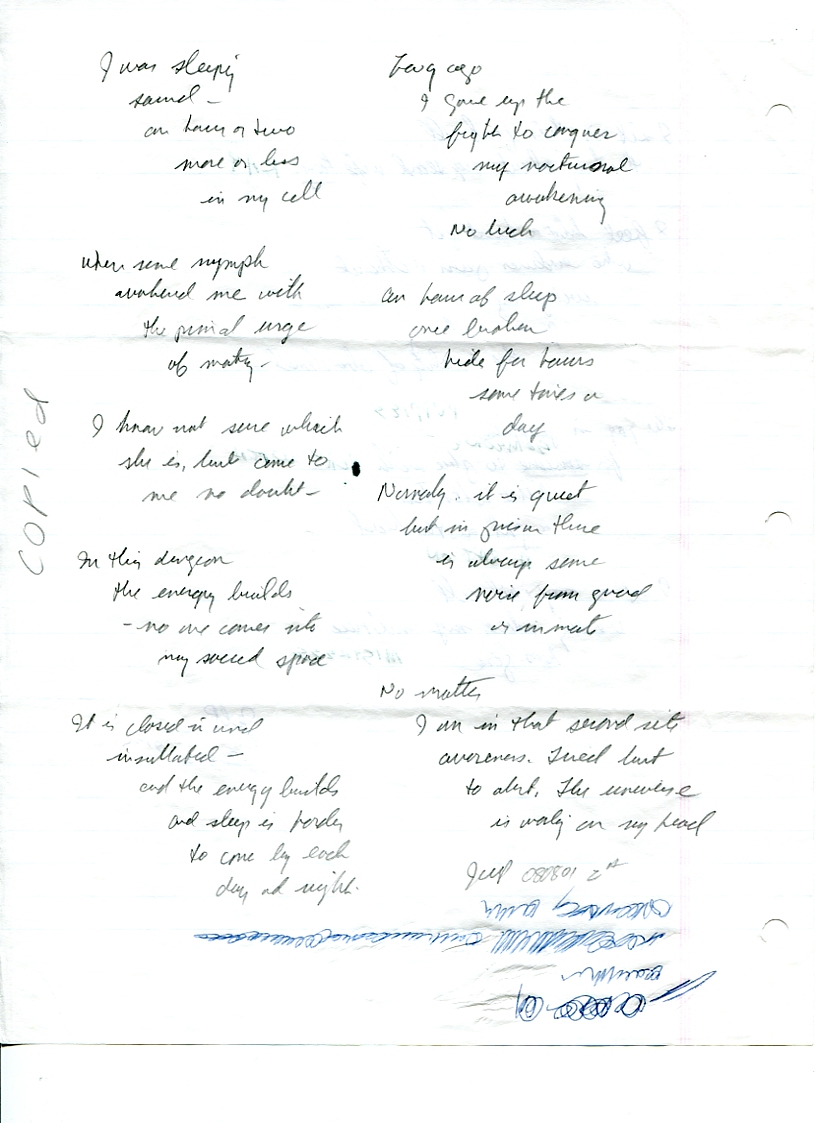 I was sleeping
sound –
an hour or two
more or less
in my cell
when some nymph
awakened me with
the primal urge
of mating –
I know not sure which
she is, but come to
me no doubt –
In this dungeon
the energy builds
– no one comes into
my sacred space
It is closed in and
insullated –
and the energy builds
and sleep is harder
to come by each
day and night.
Long ago
I gave up the
fight to conquer
my nocturnal
awakening
No luck
an hour of sleep
once broken
hide for hours
some times a
day
Normaly. it is quiet
but in prison there
is always some
noise from guard
or inmate
No matter
I am in that second
awareness. Tired but
to alert. The universe
is working on my head
108080 2
COPIED